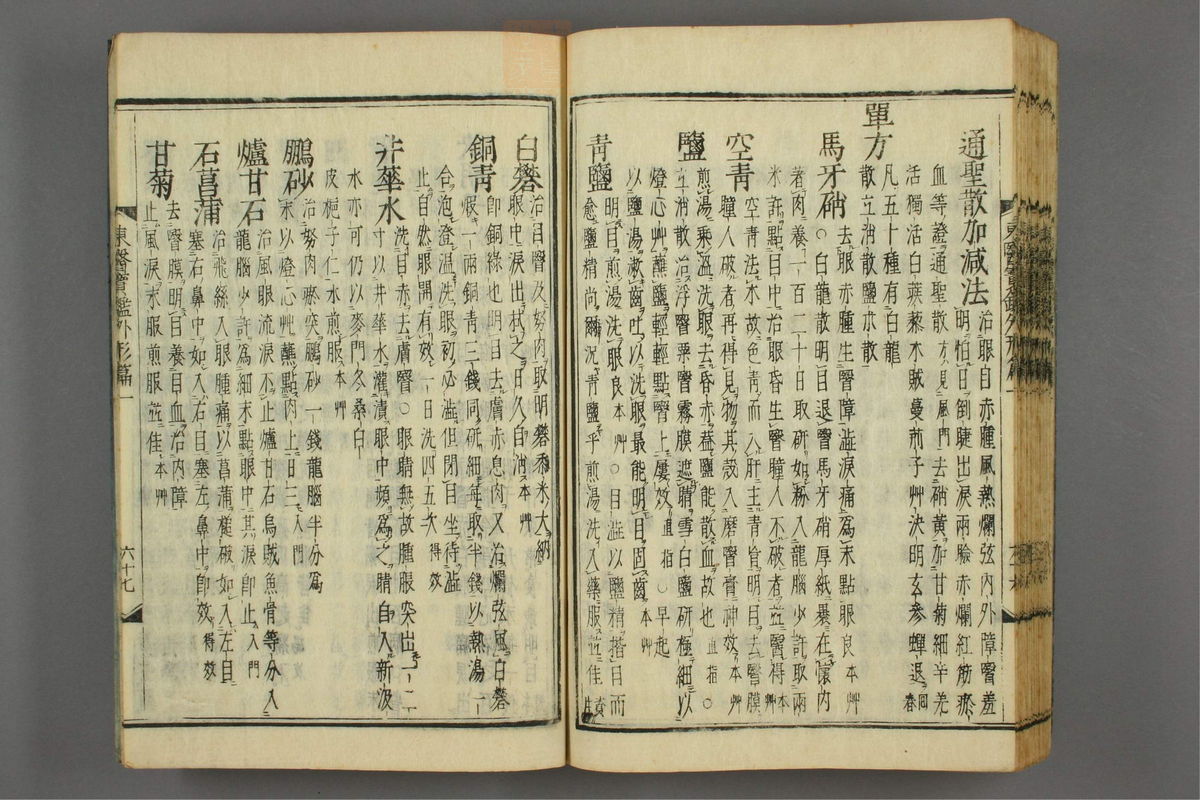 通聖散加減法 治眼目赤腫風熱爛弦內外障瞖羞
明怕日倒睫出淚兩瞼赤爛紅筋瘀
血等證通聖散方見風門去硝黃加甘菊細辛羌
活獨活白蒺藜木賊蔓荊子草決明玄參蟬退回春
單方 凡五十種有白龍
散立消散鹽朮散
馬牙硝 去眼赤腫生瞖障澁淚痛爲末點眼良本艸
○白龍散明目退瞖馬牙硝厚紙裹在懷內
着肉養一百二十日取研如粉入龍腦少許取兩
米許點目中治眼昏生瞖瞳人不破者並瞖得本艸
空靑 空靑法木故色靑而入肝主靑盲明目去瞖膜
瞳人破者再得見物其殼入磨瞖膏神效本艸
鹽 煎湯乘溫洗眼去昏赤蓋鹽能散血故也直指○
立消散治浮瞖粟瞖霧膜遮睛雪白鹽研極細以
燈心艸蘸鹽輕輕點瞖上屢效直指○早起
以鹽湯漱齒吐以洗眼最能明目固齒本艸
靑鹽 明目煎湯洗眼良本艸○目澁以鹽精揩目而
愈鹽精尙爾況靑鹽乎煎湯洗入藥服並佳資生
白礬 治目瞖及努肉取明礬黍米大納
眼中淚出拭之日久自消本艸
銅靑 卽銅綠也明目去膚赤息肉又治爛弦風白礬
煆一兩銅靑三錢同硏細每取半錢以熱湯一
合泡澄溫洗眼初必澁但閉目坐待澁
止自然眼開有效一日洗四五次得效
井華水 洗目赤去膚瞖○眼睛無故腫脹突出一二
寸以井華水灌漬眼中頻爲之睛自入新汲
水亦可仍以麥門冬桑白
皮梔子仁水煎服本艸
鵬砂 治努肉瘀突鵬砂一錢龍腦半分爲
末以燈心艸蘸點肉上日三入門
爐甘石 治風眼流淚不止爐甘石烏賊魚骨等分入
龍腦少許爲細末點眼中其淚卽止入門
石菖蒲 治飛絲入眼腫痛以菖蒲槌破如入左目
塞右鼻中如入右目塞左鼻中卽效得效
甘菊 去瞖膜明目養目血治內障
止風淚末服煎服並佳本艸
東醫寶鑑外形篇一
六十七